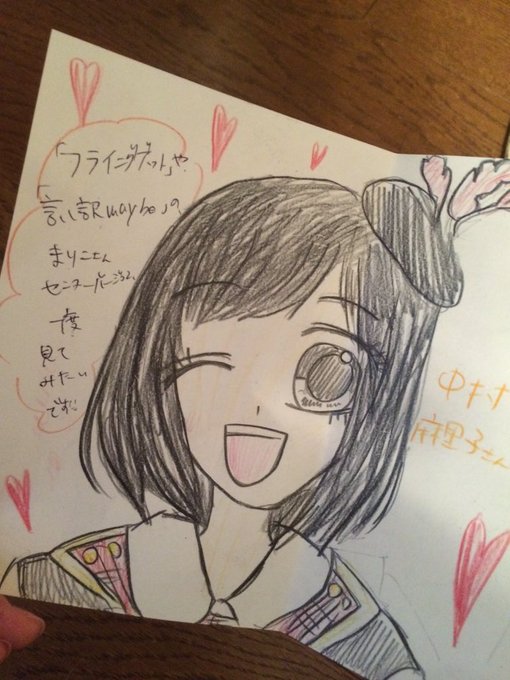 「フライングゲット」や
「言い訳maybe」の
まりこさん
センターバージョン、
一度
見て
みたい
です!!
中村
麻里子さん